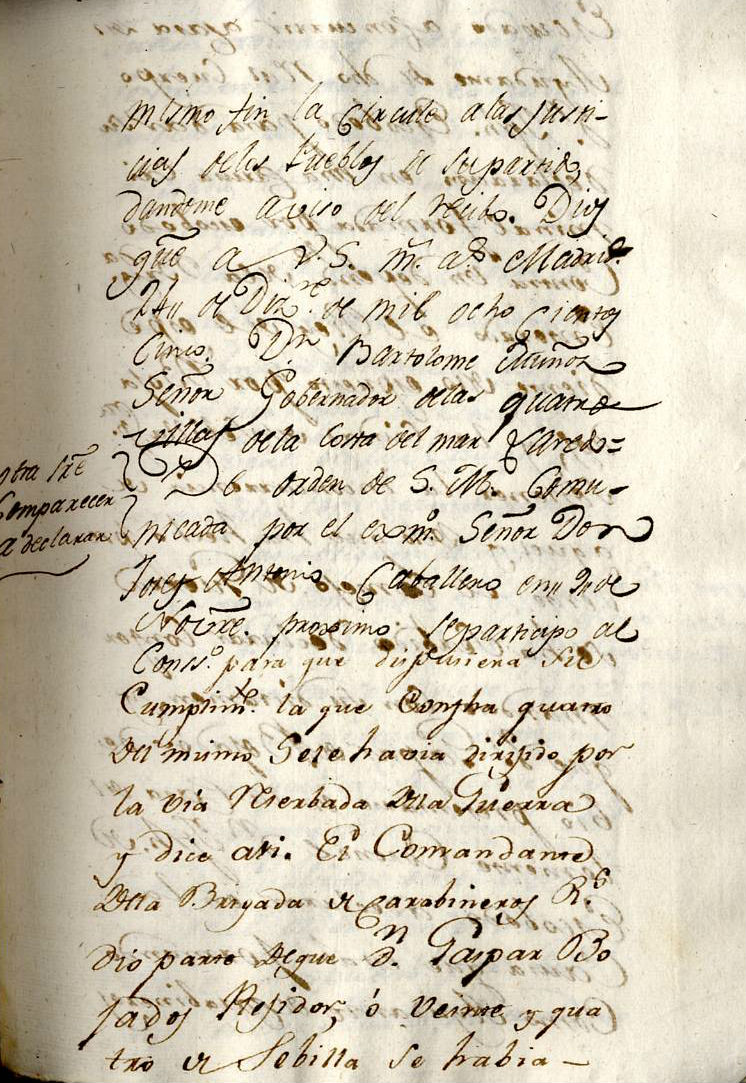 mismo fin la Circule a las Justi-
cias delos Pueblos de su partido,
dandome aviso del recibo. Dios
gũe a V.S. m.s a.s Madrid.
24,, de Diz.re de mil ocho cientos
Cinco. D.n Bartolome Muñoz
Señor Gobernador delas quatro
Villas dela Costa del mar Laredo=
De orden de S. M. Comu-
otra sr̃e
Comparecer
a declarar
nicada por el exmo. Señor Don
Josef Antonio Caballero en,, 9,, de
Nobr̃e. proximo se participo al
Cons.o para que dispusiera su
Cumplim.to la que Con fha quatro
del mismo se le havia dirijido por
la via Reserbada dela Guerra
y dice asi. El Comandante
dela Brigada de Carabineros R.s
dio parte de que d.n Gaspar Bo
sados Rejidor, ó veinte y qua
tro de Sebilla se habia-